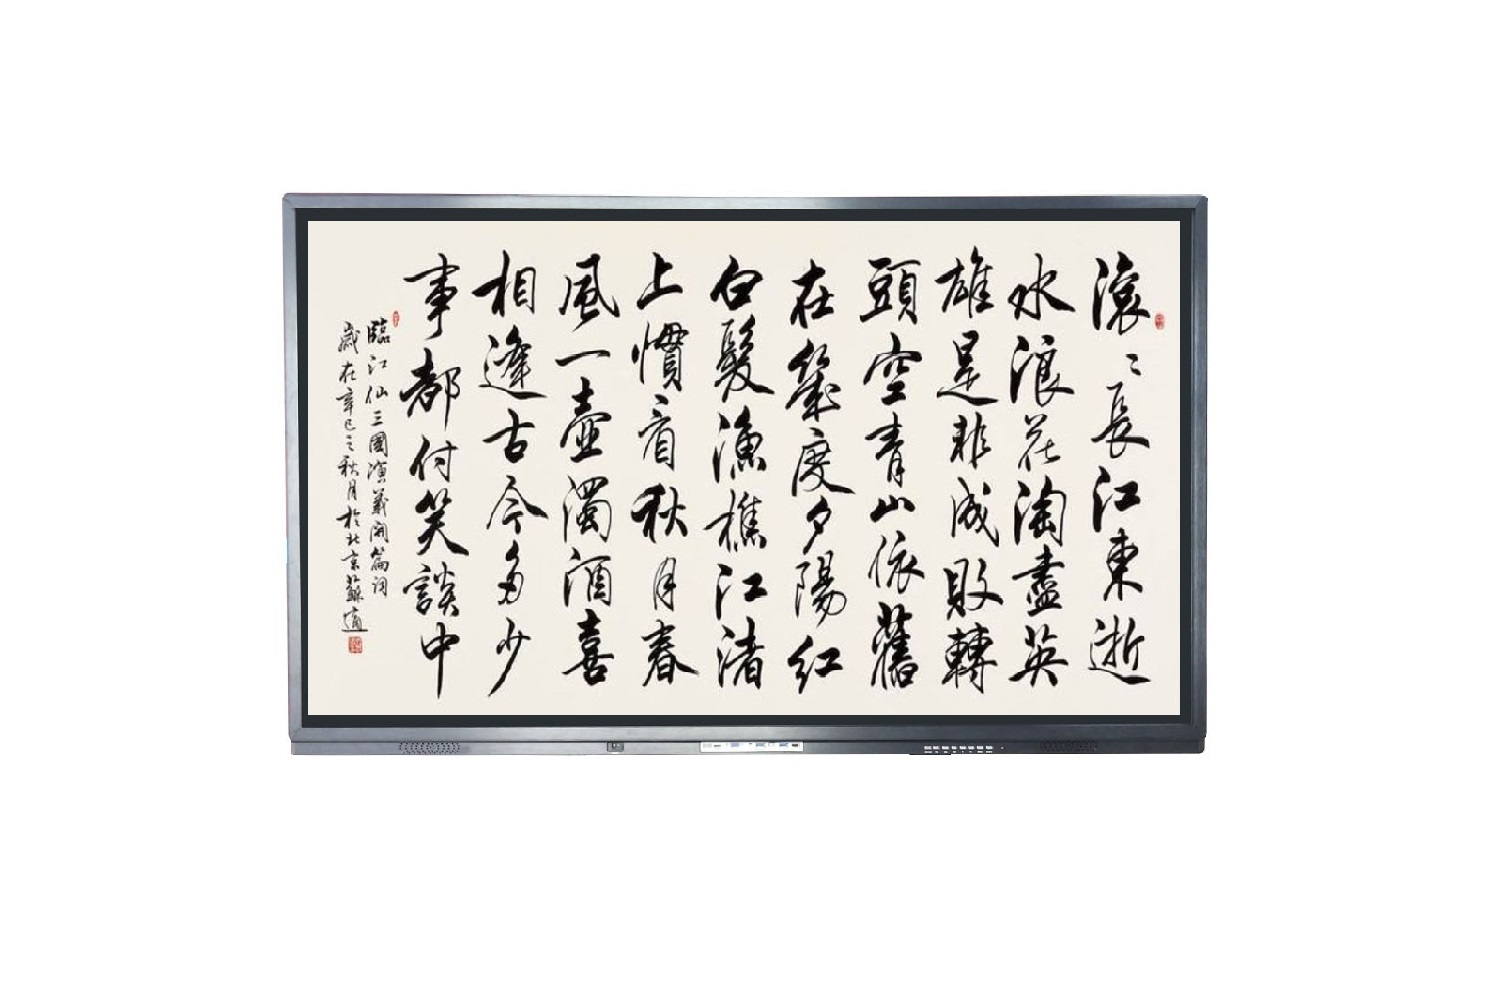 滚〻長江東逝
水浪花淘盡英
雄是非成敗轉
頭空青山依舊
在幾度夕陽紅
白髮漁樵江渚
上慣看秋月春
風一壺濁酒喜
相逢古今多少
事都付笑談中
臨江仙三國演義開篇词
歲在辛巳之秋月於北京蘇適